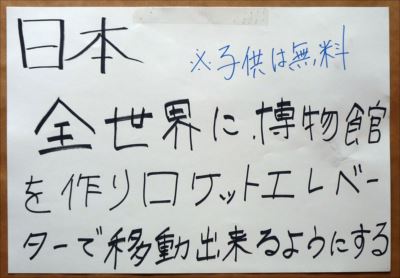 日本
※子供は無料
全世界に博物館
を作りロケットエレベー
ターで移動出来るようにする